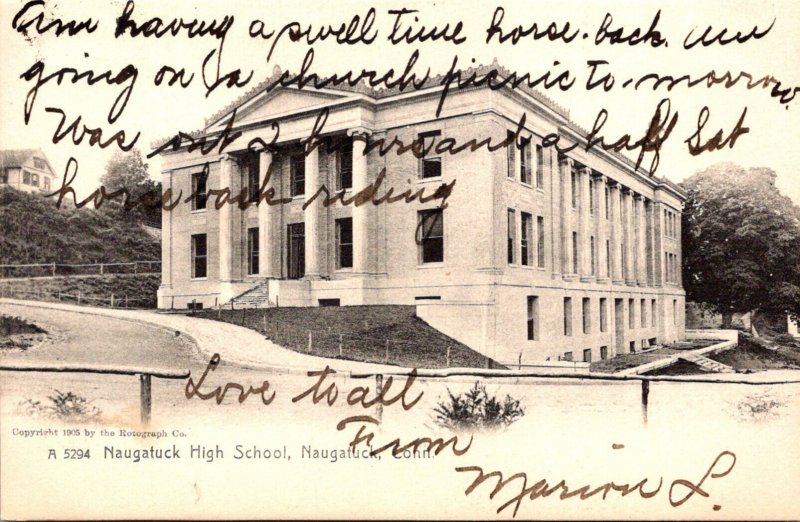 Am having a swell time horse-back. am
going on a church picnic to-morrow.
Was out 2 hours and a haff Sat
horse back riding
Love to all
Copyright 1905 by the Rotograph Co.
From
A 5294 Naugatuck High School, Naugatuck, Conn.
Marion L.